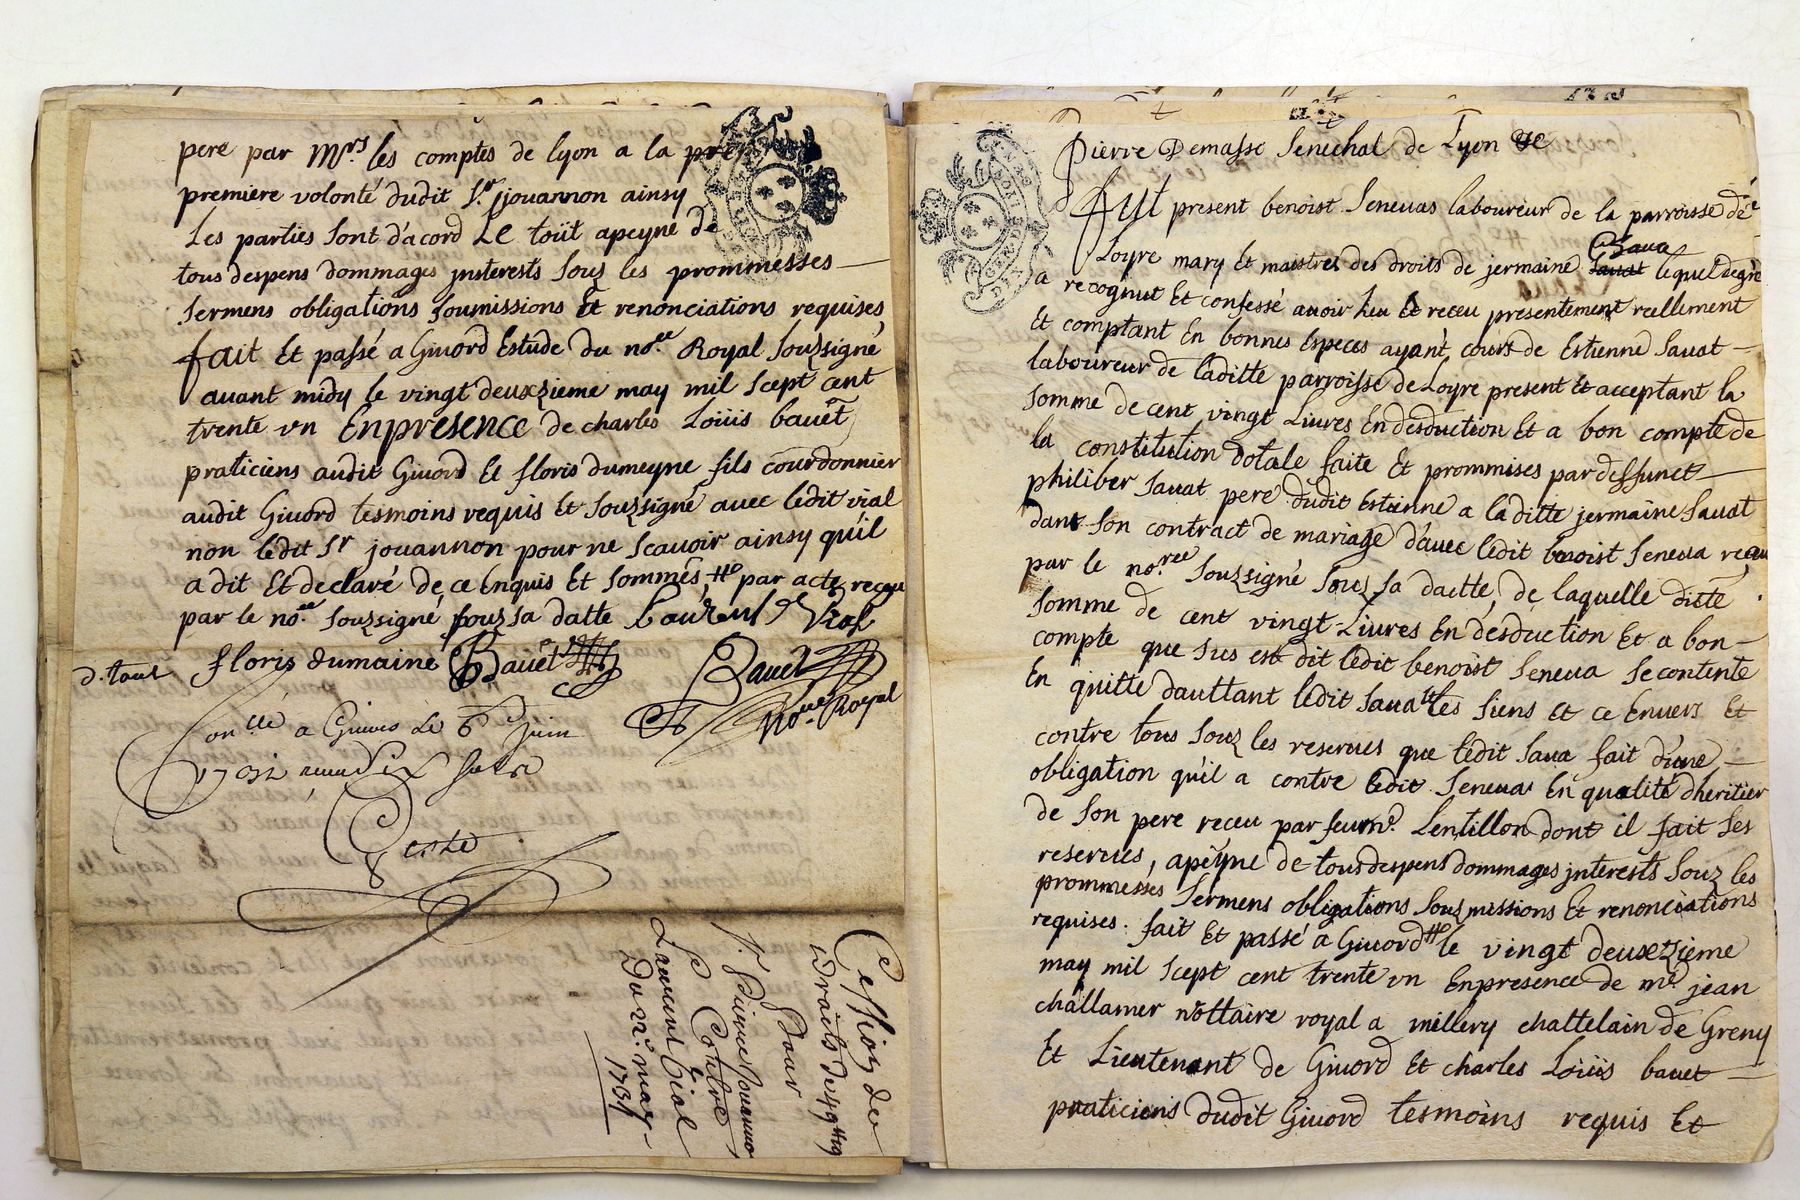 pere par Mrs les comptes de lyon a la prem
premiere volonté dudit Sr jouannon ainsy
Les parties sont d'acord Le toüt apeyne de
tous despens dommages jnterests souz les prommesses
sermens obligations soumissions Et renonciations requises
fait Et passé a Giuord Estude du nore Royal souzsigné
auant midy le vingt deuxzieme may mil scept cent
trente vn Enpresence de charles Loüis bauet
praticiens audit Giuord Et floris dumeyne fils courdonnier
audit Giuord tesmoins requis Et souzsigné auec ledit vial
non ledit Sr jouannon pour ne scauoir ainsy qu'il
a dit Et declaré de ce Enquis Et sommés par acte receu
par le nore souzsigné souz sa datte Laurens Vial
floris dumaine Bauet Bauet
nore Royal
onllé a Giuors Le 6e Juin
1731
Cession de
Droits de
Pour
Sr Pierre Jouannon
Contre
Laurent Vial
Du 22e may
1731
Pierre Demasso Senechal de Lyon
fut present benoist Seneuas laboureur de la parroisse de
Loyre mary Et maistres des droits de jermaine Saua lequel de gré
a recognut Et confessé auoir Eu Et receu presentement reellement
Et comptant En bonnes Especes ayant cours de Estienne Sauat
laboureur de laditte parroisse de Loyre present Et acceptant la
somme de cent vingt Liures En desduction Et a bon compte de
la constitution dotale faite Et prommises par deffunct
philiber Sauat pere dudit Estienne a laditte jermaine Sauat
dans son contract de mariage d'auec ledit benoist Seneua receu
par le noree souzsigné souz sa datte, de laquelle ditte
somme de cent vingt Liures En desduction Et a bon
compte que sus est dit ledit benoist Seneua se contente
En quitte dauttant ledit Sauat les siens Et ce Enuers Et
contre tous souz les reserues que ledit Saua fait d'une
obligation qu'il a contre ledit Seneua En qualité dheritier
de son pere receu par feu me Lentillon dont il fait ses
reserues, apeyne de tous despens dommages jnterests souz les
prommesses sermens obligations souzmissions Et renonciations
requises. fait Et passé a Giuord le vingt deuxzieme
may mil scept cent trente vn Enpresence de me jean
challamer nottaire royal a millery chattelain de Greny
Et Lieutenant de Giuord Et charles Loüis bauet
praticiens dudit Giuord tesmoins requis Et